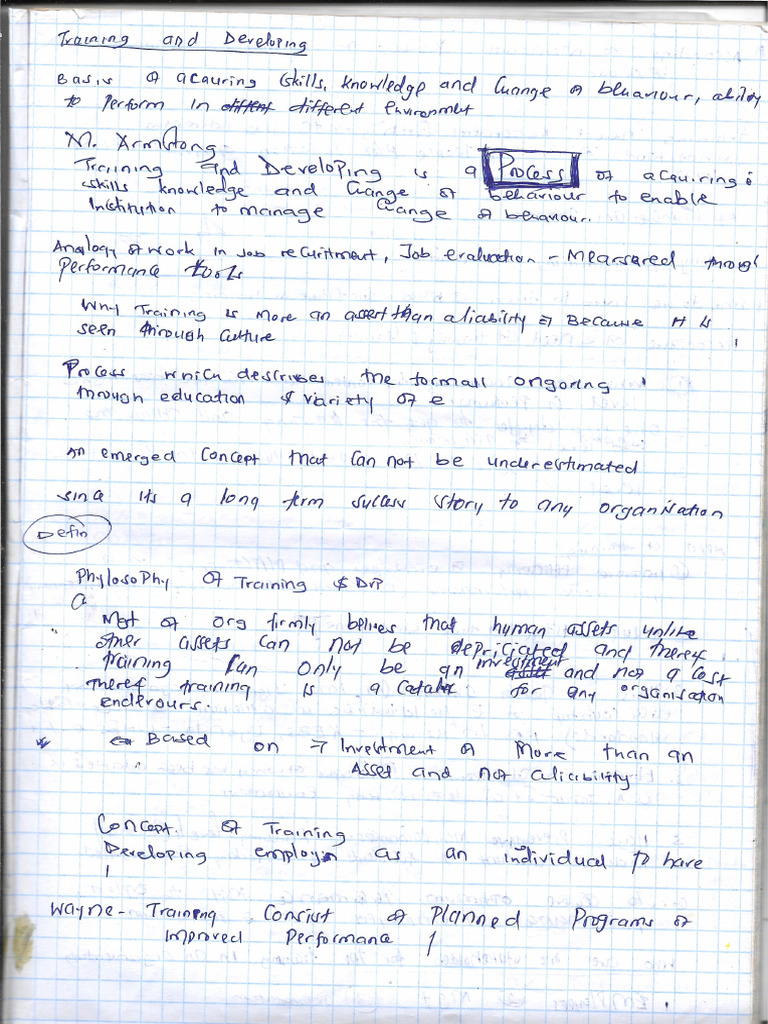 Training and Developing
Basis of acauring skills, knowledge and Change of behaviour, ability
to perform in different different Environment
M. Armstong.
Traiining and Developing is a Process of acquiring
skills knowledge and Change of behaviour to enable
Institution to manage Change of behaviour.
Analogy of work in Job recuritment, Job evaluation - Mearsured throug
performance tools
Why Training is more an assert than aliability ⇒ Because it is
seen through Culture
Process which describes the formall ongoring
through education & variety of e
An emerged Concept that Can not be underestimated
since its a long term sucless story to any organisation
Defin
Phylosophy of Training & Dvp
Most of org firmly believes that human assets unlike
other assets Can not be depriciated and theref
training Can only be an investment asset and not a Cost
theref training is a Catalx for any organisation
enderours.
Based on ⇒ Investment of More than an
Asset and not aliability
Concept of Training
Developing employin as an individual to have
Wayne - Training Consist of Planned Programs of
Improved Performance